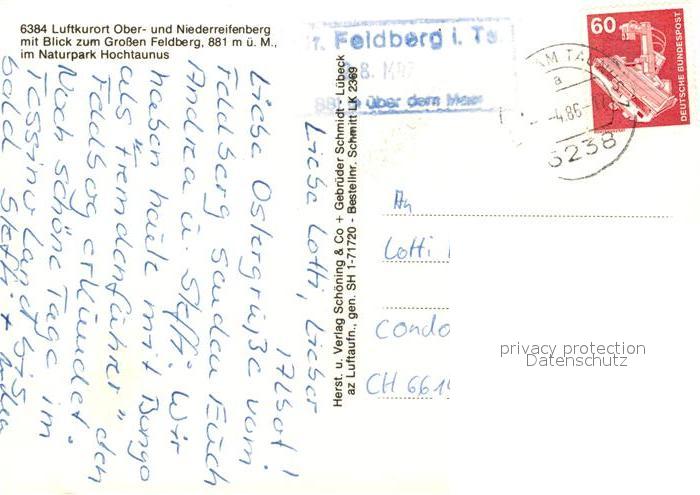 6384 Luftkurort Ober- und Niederreifenberg
mit Blick zum Großen Feldberg, 881 m ü. M.,
im Naturpark Hochtaunus
r. Feldberg i. Ts.
8. M
881 m über dem Meer
60
DEUTSCHE BUNDESPOST
AM TAUNUS
a
4.86
6238
Herst. u. Verlag Schöning & Co + Gebrüder Schmidt - Lübeck
az Luftaufn., gen. SH 1-71720 - Bestellnr. Schmidt LK 2369
Liebe Lotti, Lieber
!
Liebe Ostergrüße vom
Feldberg senden Euch
Andrea u. Steffi. Wir
haben heute mit
als "Fremdenführer" den
Feldberg erkundet.
Noch schöne Tage im
Tessiner Land, bis
bald Steffi +
An
Lotti
Condo
CH 661
privacy protection
Datenschutz